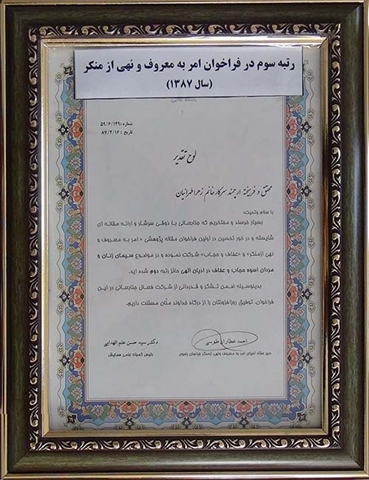 رتبه سوم در فراخوان امر به معروف و نهی از منکر
(سال ۱۳۸۷)
لوح تقدیر
محقق و فرهیخته ارجمند سرکار خانم زهرا طهرانیان
با سلام و تحیت؛
بسیار خرسند و مفتخریم که جنابعالی با ذوقی سرشار و ارائه مقاله ای
شایسته و در خور تحسین در اولین فراخوان مقاله پژوهشی « امر به معروف و
نهی ازمنکر» و «عفاف و حجاب» شرکت نموده و در موضوع سیمای زنان و
مردان اسوه حجاب و عفاف در ادیان الهی حائز رتبه دوم شده اید.
بدینوسیله ضمن تشکر و قدردانی از شرکت فعال جنابعالی در این
فراخوان، توفیق روزافزونتان را از درگاه خداوند منان مسئلت داریم.
دکتر سید حسن علم الهدایی
رئیس کمیته علمی همایش